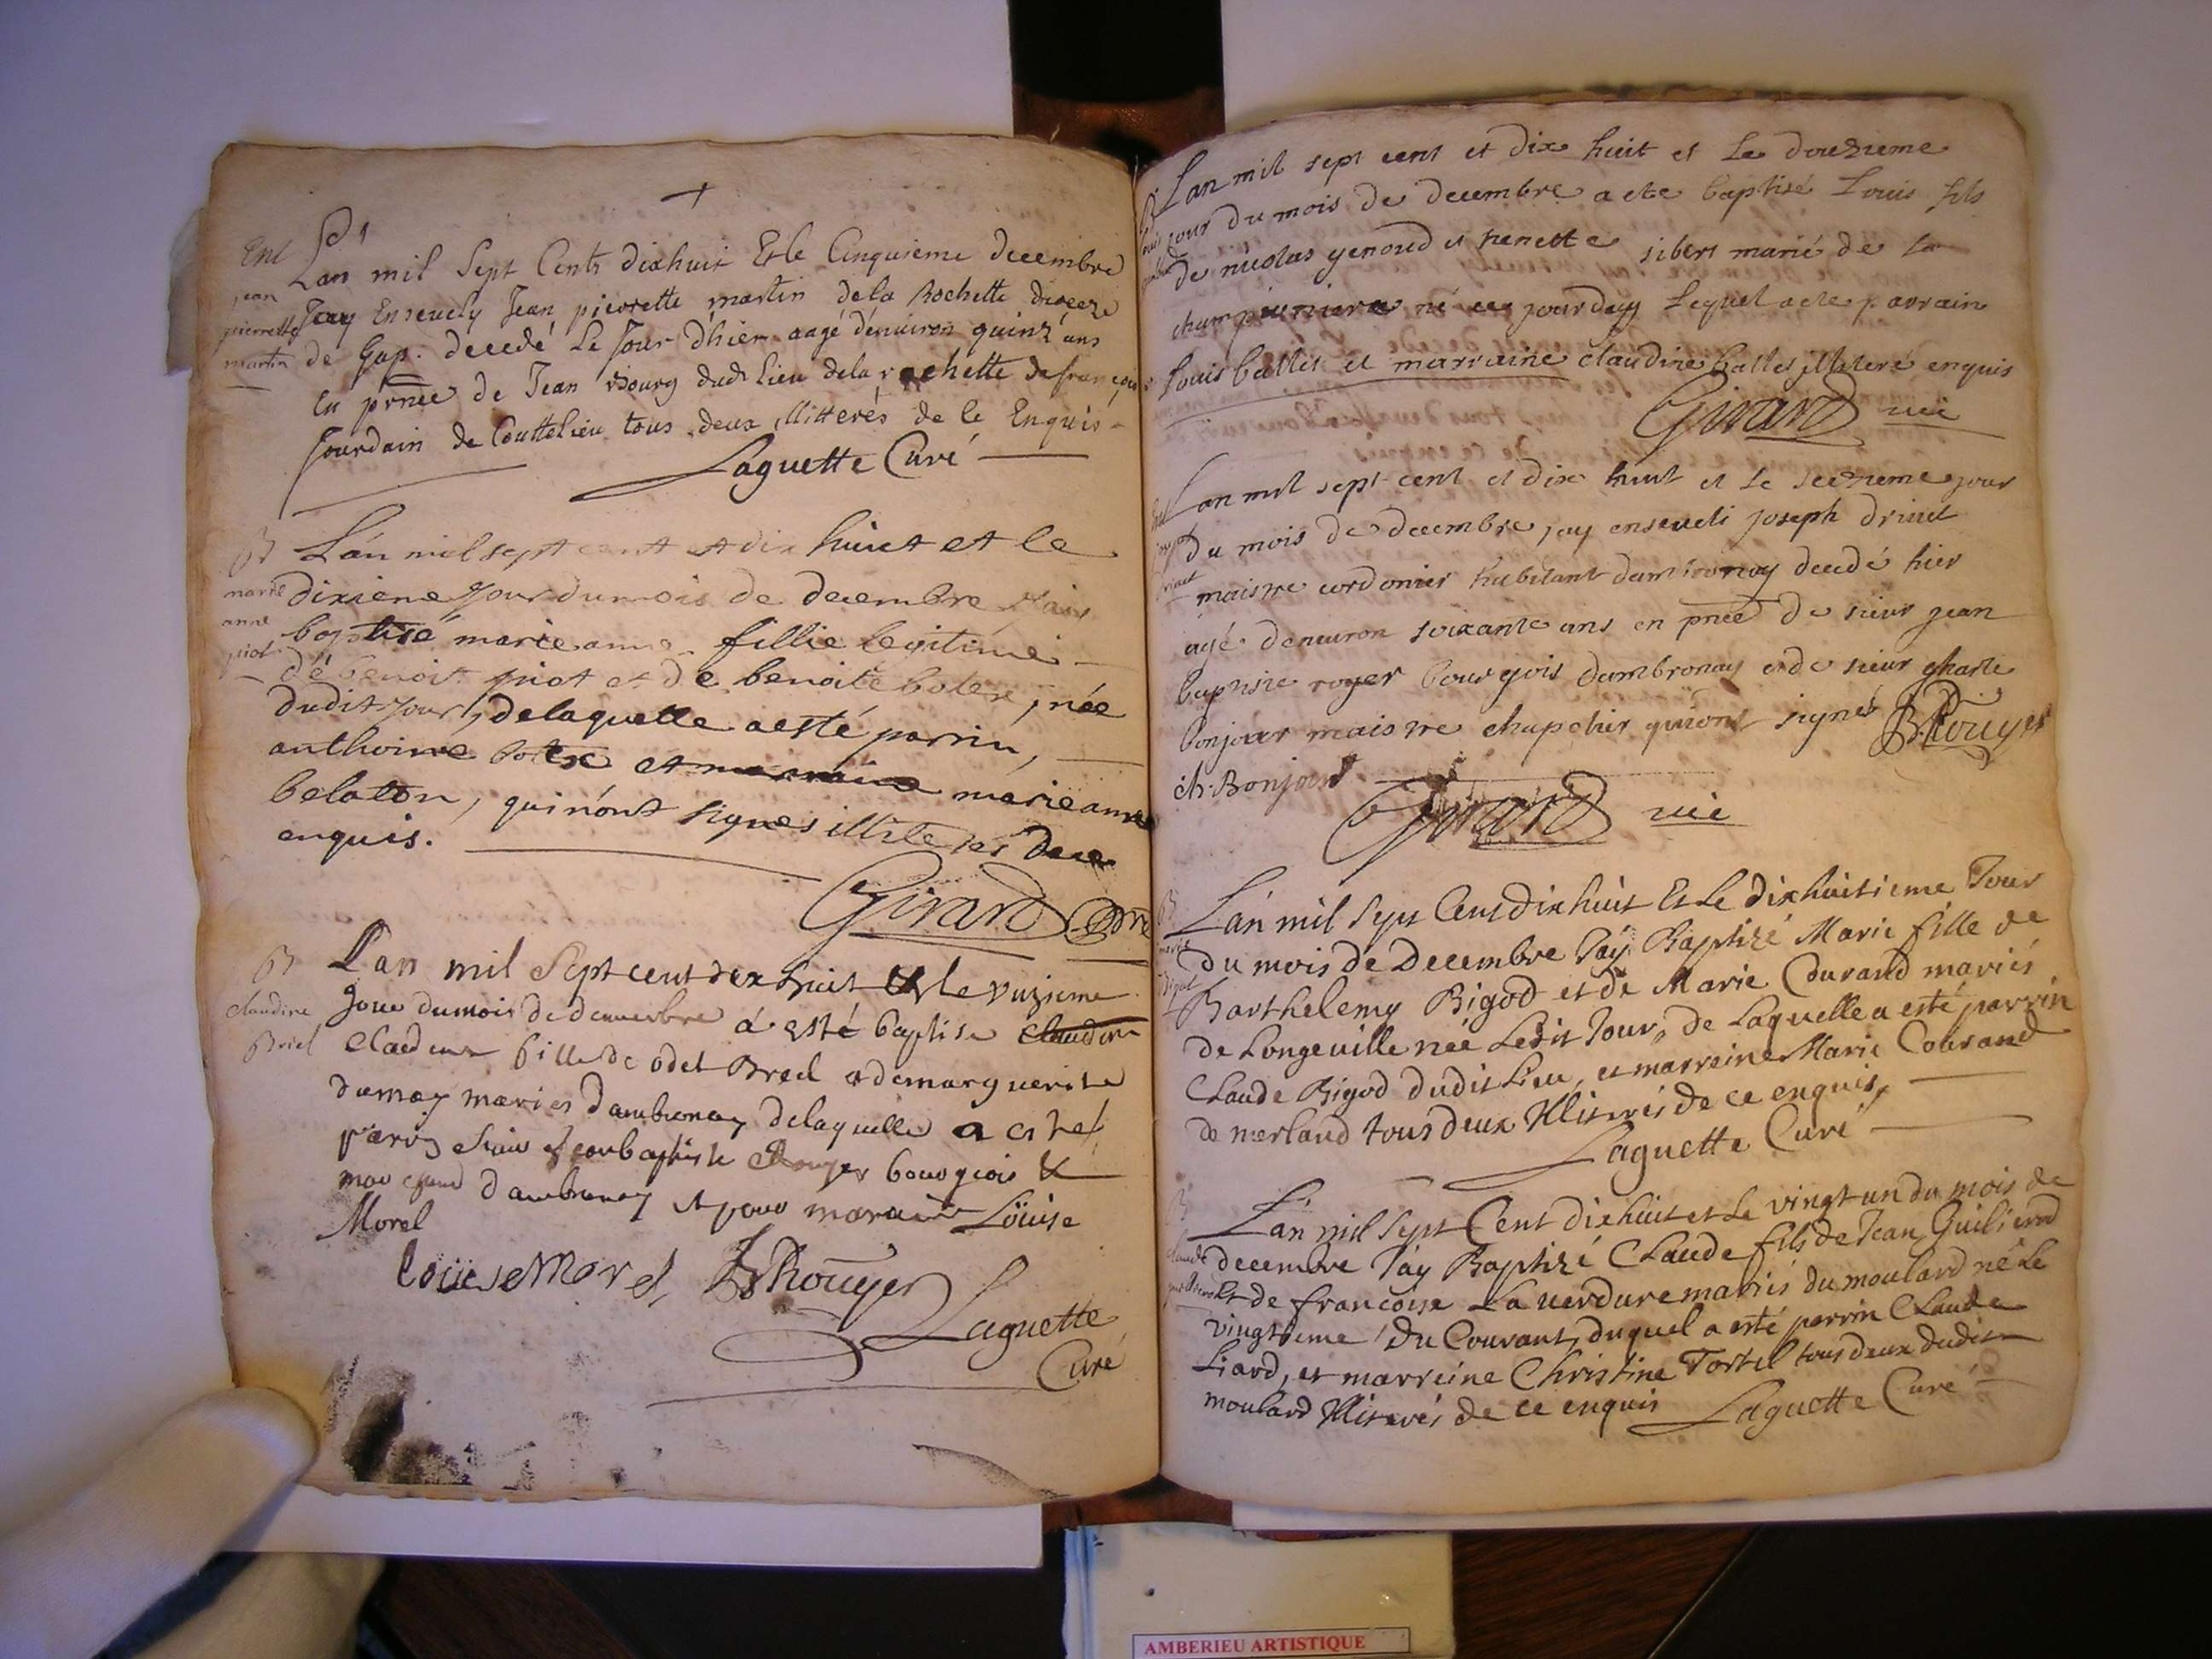 Ent
jean
pierrette
martin
L'an mil Sept Cents dixhuit Et le Cinquieme decembre
Jay Ensevely Jean pierrette martin de la Rochette dioceze
de Gap. decedé Le Jour d'hier aagé d'environ quinz' ans
En pnce de Jean bourg dudt Lieu dela rochette de françois
Jourdain de Couttelieu tous deux illitterés de le Enquis
Laguette Curé
B
marie
anne
piot
L'an mil sept cent et dix huict et le
dixieme Jour du mois de decembre Jaÿ
baptisé marie anne fillie legitime
dé benoit piot et de benoite botex, née
dudit jour, delaquelle a esté parrin,
anthoine botex et marraine marie anne
belaton, qui n'ont signes illiteres de ce
enquis.
Girard Pbre
B
claudine
Briel
L'an mil Sept cent dix huit & le unzieme
Jour du mois de decembre a esté baptise claudine
Claudine fille de odet Breel & de marguerite
dumay maries dambronay delaquelle a esté
parin sieur Jean baptiste Rouyer bourgeois &
marchand dambronay et pour maraine Loüise
Morel
loüise Morel JB Rouyer
Laguette
Curé
B
Lan mil sept cent et dix huit et le douzieme
jour du mois de decembre a ete baptisé Louis fils
de nicolas genoud et henette sibert marié de la
championiere né ce jourday lequel a ete parrain
Louis battet et marraine claudine battet illiteré enquis
Girard vic
Ent
joseph
drinet
Lan mil sept cent et dix huit et le sezieme jour
du mois de decembre, jay enseveli joseph drinet
maistre cordonier habitant dambronay decedé hier
agé denviron soixante ans en pnce de sieur jean
baptiste royer bourgois dambronay et de sieur charle
bonjour maistre chapelier qui ont signés JB Rouyer
ch. Bonjour
Girard vic
B
marie
bigot
L'an mil Sept Cent dixhuit Et Le dixhuitieme Jour
du mois de Decembre Jaÿ Baptizé Marie fille de
Barthelemy Bigod et de Marie Courand mariés
de Longeville née Ledit Jour, de Laquelle a esté parrin
Claude Bigod dudit Lieu, et marreine Marie Courand
de merland tous deux Illiterés de ce enquis,
Laguette Curé
B
claude
L'an mil Sept Cent dixhuit et Le vingt un du mois de
decembre J'ay Baptizé Claude fils de Jean Guillierod
Et de francoise La verdure mariés du moulard né Le
vingtieme du Courant, duquel a esté parrin Claude
Liard, et marreine Christine Tortel tous deux dudit
moulard Illiterés de ce enquis Laguette Curé
AMBERIEU ARTISTIQUE